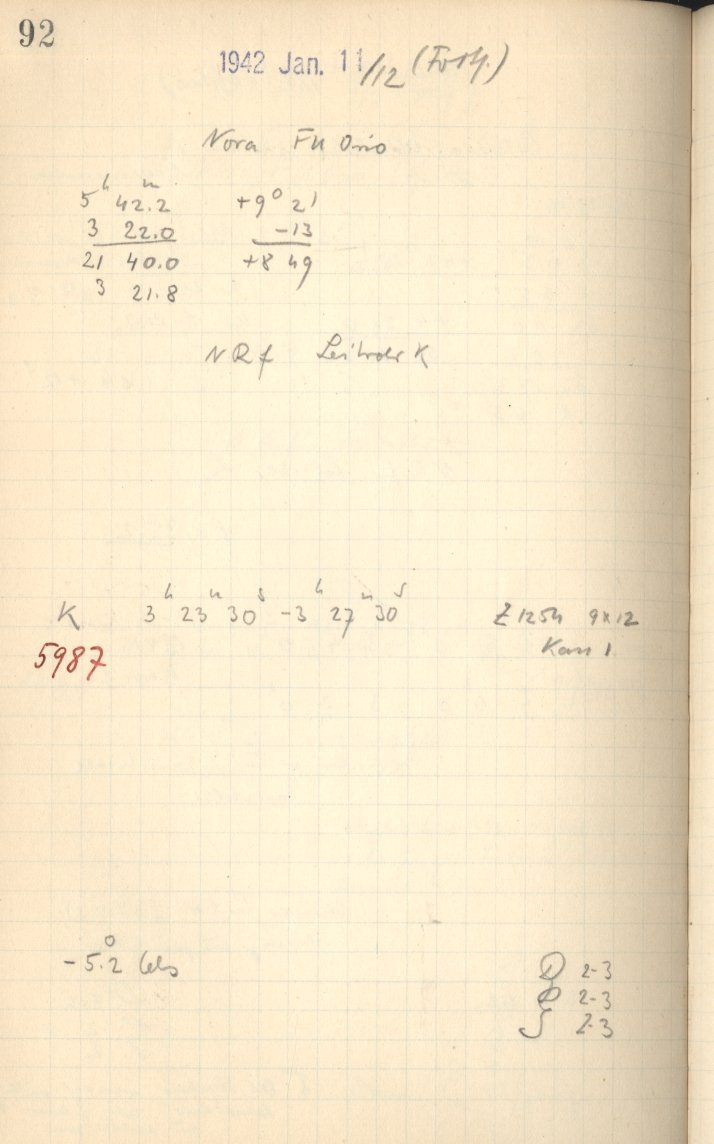 92
1942 Jan. 11/12 (Forts.)
Nova FU Orio
5h 42m.2 +9° 21'
3 22.0 -13
21 40.0 +8 49
3 21.8
NRf Leitrohr K
K 3h 23m 30s - 3h 27m 30s Z 1254 9x12
5987 Kass 1
-5°.2 Cels
2-3
2-3
2-3